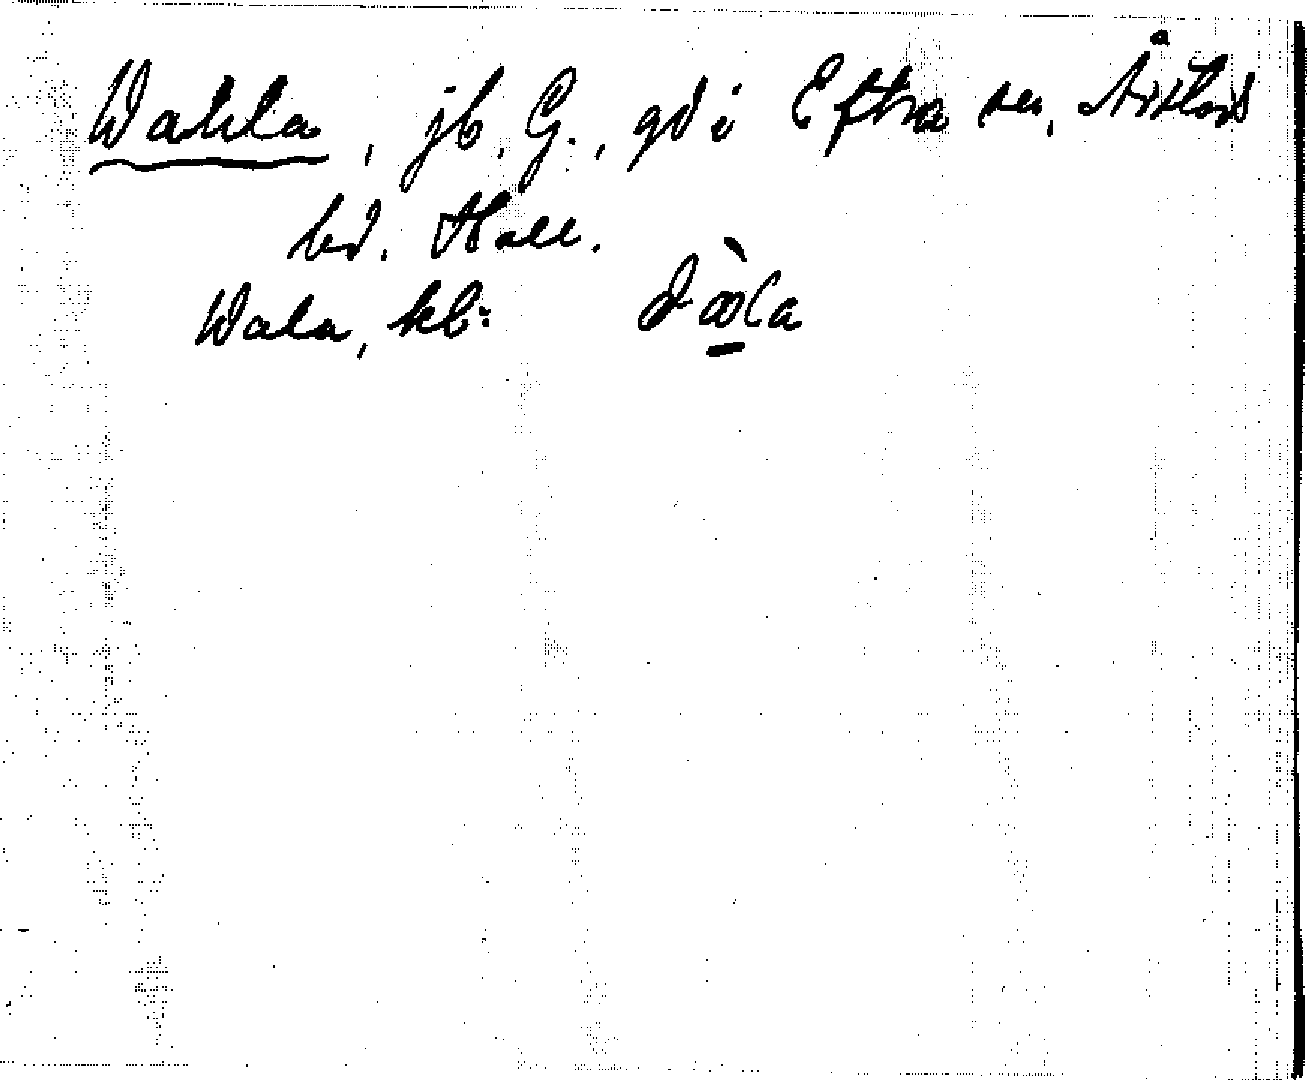 Wahla, jb. G., gd i Eftra sn, Årstads
hd. Hall.
Wala, kb: